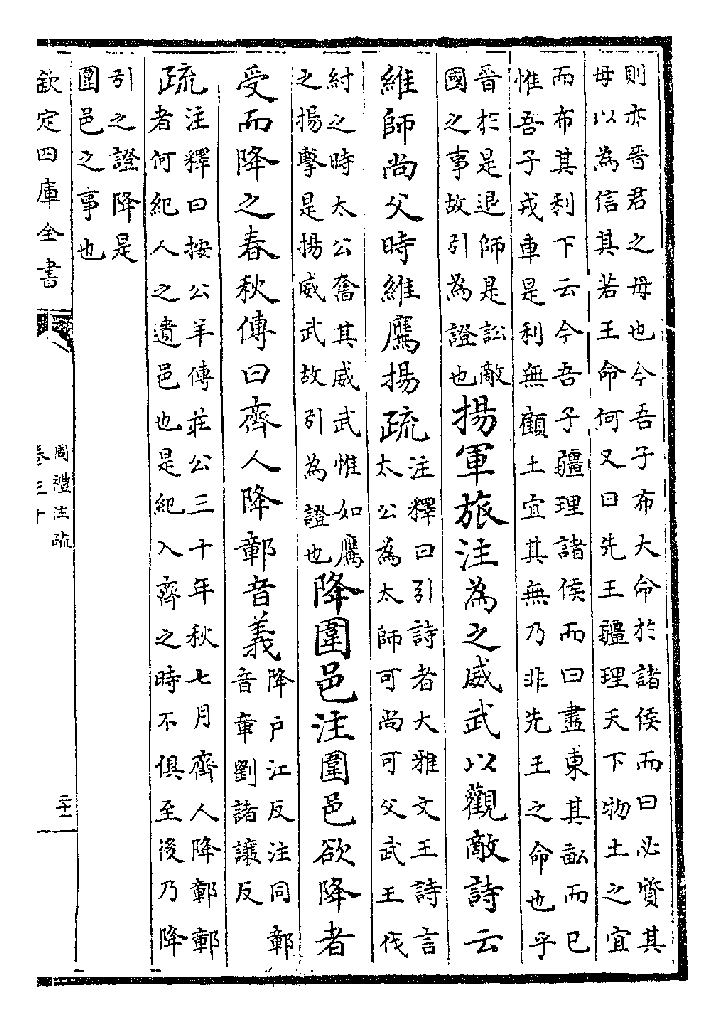 則亦晉君之母也今吾子布大命於諸侯而曰必質其
母以為信其若王命何又曰先王疆理天下物土之宜
而布其利下云今吾子疆理諸侯而曰盡東其畝而已
惟吾子戎車是利無顧土宜其無乃非先王之命也乎
晉於是退師是訟敵
國之事故引為證也
揚軍旅注為之威武以觀敵詩云
維師尚父時維鷹揚疏
注釋曰引詩者大雅文王詩言
太公為太師可尚可父武王伐
紂之時太公奮其威武惟如鷹
之揚擊是揚威武故引為證也
降圍邑注圍邑欲降者
受而降之春秋傳曰齊人降鄣音義
降戶江反注同鄣
音章劉諸讓反
疏
注釋曰按公羊傳莊公三十年秋七月齊人降鄣鄣
者何紀人之遺邑也是紀入齊之時不俱至後乃降
引之證降是
圍邑之事也
欽定四庫全書
周禮注疏
卷三十